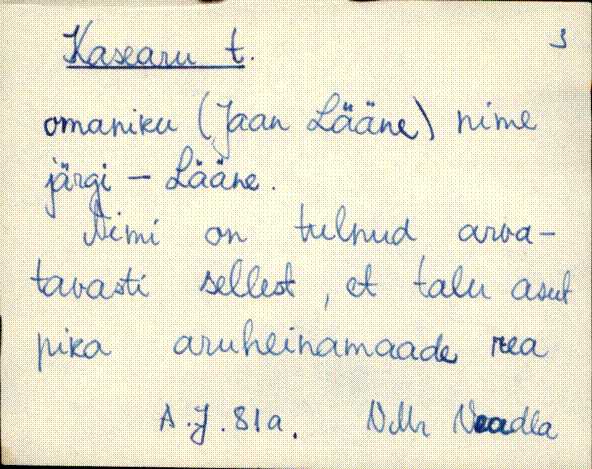 Kasearu t. 3
omaniku (Jaan Lääne) nime
järgi - Lääne.
Nimi on tulnud arva-
tavasti sellest, et talu asut
pika aruheinamaade rea
A.J. 81a. Neadla